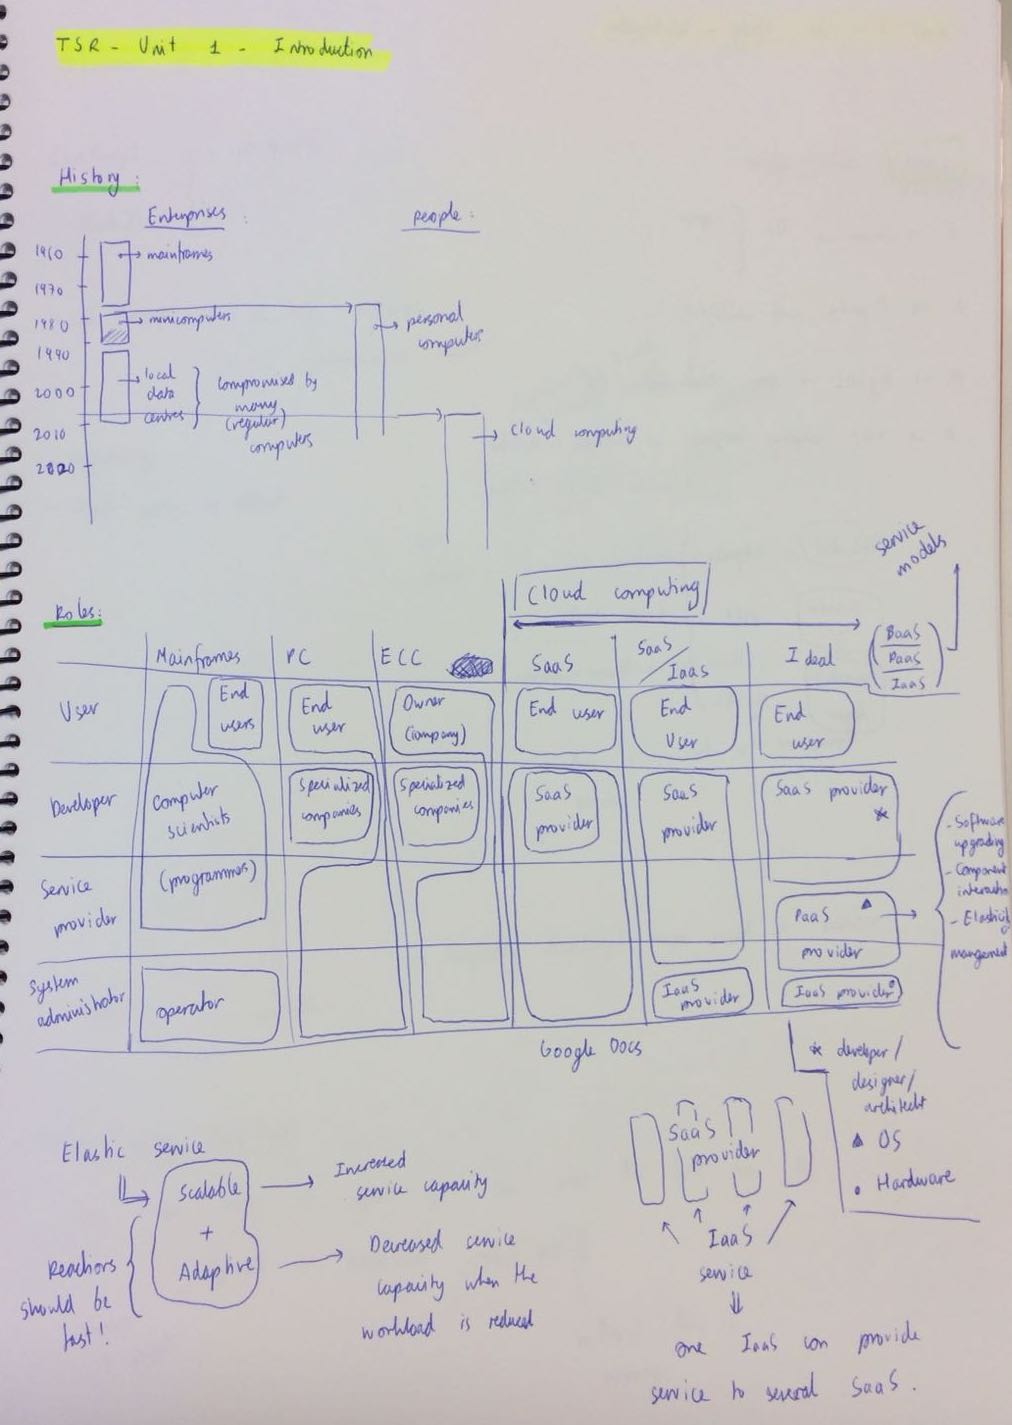 TSR - Unit 1 - Introduction
History:
Enterprises :
people :
1960
mainframes
1970
1980
minicomputers
personal
computers
1990
2000
local
data
centres
compromised by
many
(regular)
computers
2010
cloud computing
2020
service
models
Cloud computing
Roles:
Mainframes
PC
ECC
SaaS
SaaS
/ IaaS
Ideal
BaaS
PaaS
IaaS
User
End
users
End
user
Owner
(company)
End user
End
User
End
user
Developer
Computer
scientists
(programmers)
Specialized
companies
Specialized
companies
SaaS
provider
SaaS
provider
SaaS provider
*
- Software
upgrading
- Component
interaction
- Elasticity
management
Service
provider
PaaS
provider
System
administrator
operator
IaaS
provider
IaaS provider
Google Docs
* developer/
designer/
architect
▲ OS
• Hardware
Elastic service
Scalable
+
Adaptive
Increased
service capacity
Decreased service
capacity when the
workload is reduced
Reactions
should be
fast!
SaaS
provider
IaaS
service
one IaaS can provide
service to several SaaS.